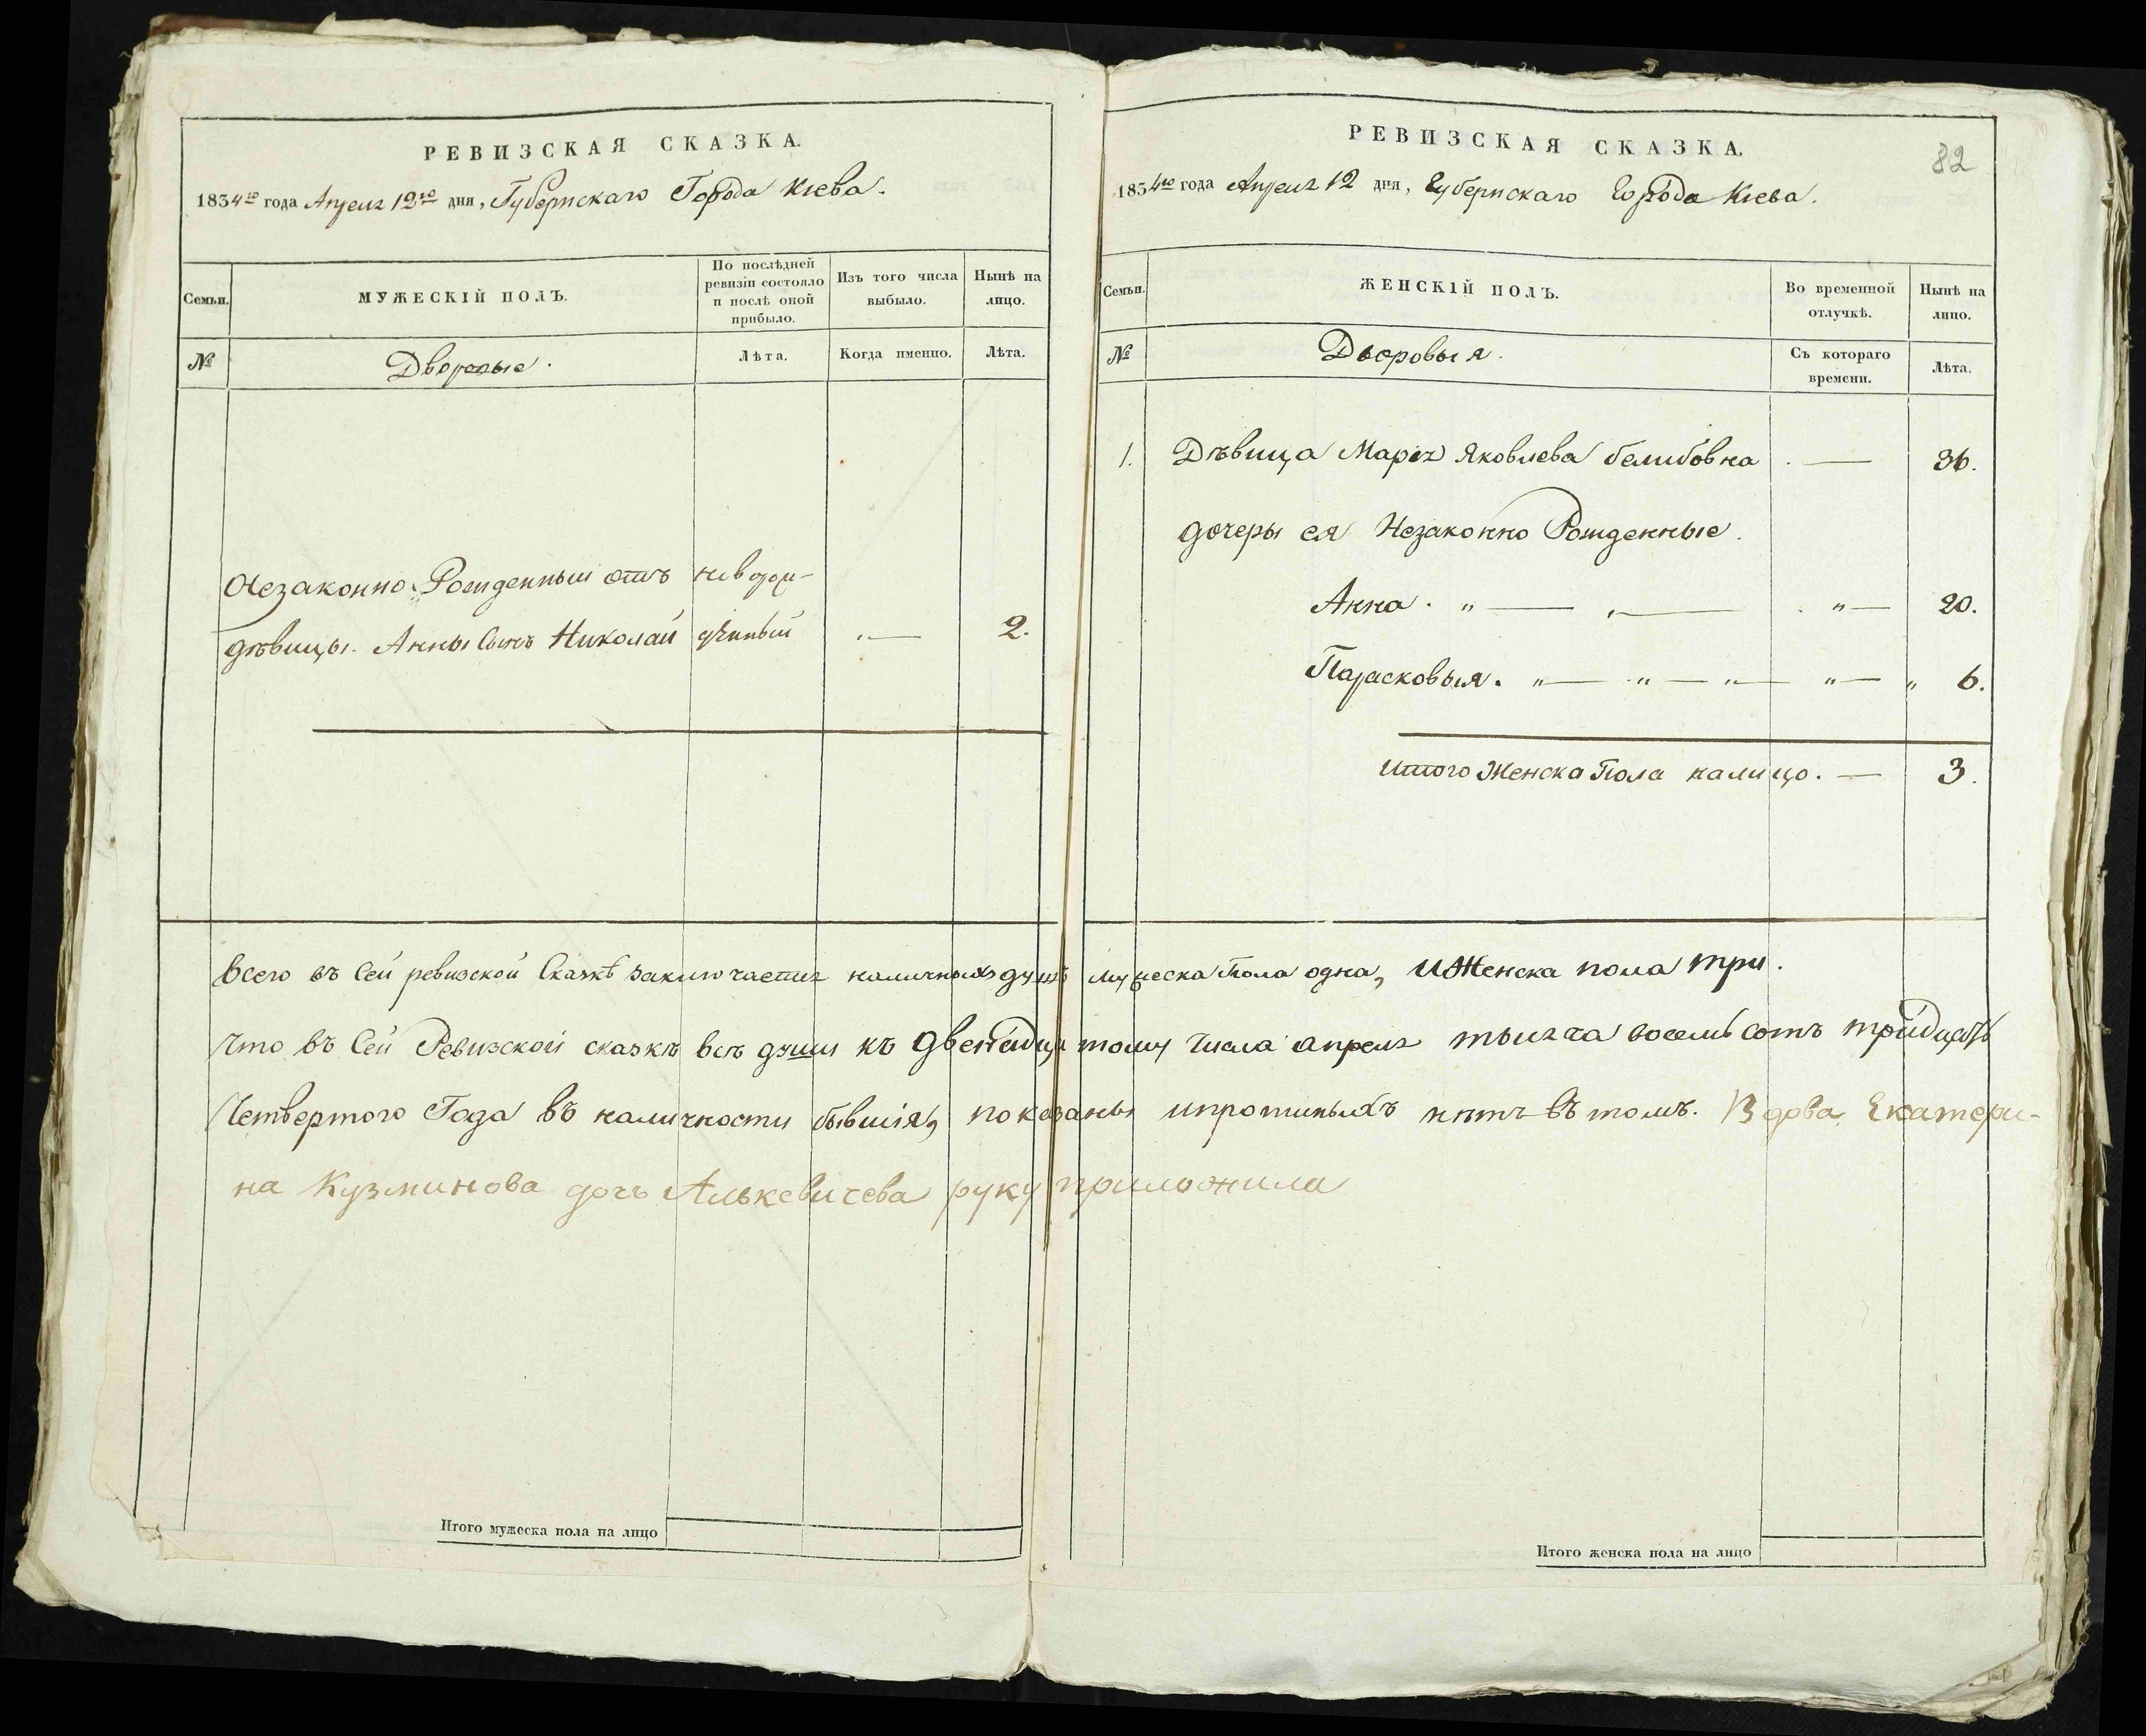 РЕВИЗСКАЯ СКАЗКА.
1834го года Апреля 12го дня, Губернскаго Города Кіева.
Семьи.
МУЖЕСКІЙ ПОЛЪ.
По послѣдней
ревизіи состояло
и послѣ оной
прибыло.
Изъ того числа
выбыло.
Нынѣ на
лицо.
№
Дворовые.
Лѣта.
Когда именно.
Лѣта.
Незаконно Рожденный отъ
дѣвицы Анны Сынъ Николай
2.
Всего въ Сей ревизской Сказкѣ заключается наличныхъ душъ мужеска Пола одна, И Женска пола три.
Что въ Сей Ревизской сказкѣ всѣ души къ двенадцатому Числа апреля тысяча восемь сотъ тридцать
Четвертого Года въ наличности бывшія, показаны ипротиныхъ нетъ въ томъ. Вдова Екатери-
на Кузминова дочь руку приложила
Итого мужеска пола на лицо
82
РЕВИЗСКАЯ СКАЗКА.
1834го года Апреля 12 дня, Губернскаго Города Кіева.
Семьи.
ЖЕНСКІЙ ПОЛЪ.
Во временной
отлучкѣ.
Нынѣ на
лицо.
№
Дворовыя.
Съ котораго
времени.
Лѣта.
1. Дѣвица Марія Яковлева — 36.
дочеры ея Незаконно Рожденные.
Анна. „ — „ — „ — 20.
Парасковья. „ — „ — „ — „ — „ 6.
Итого Женска Пола налицо. — 3.
Итого женска пола на лицо